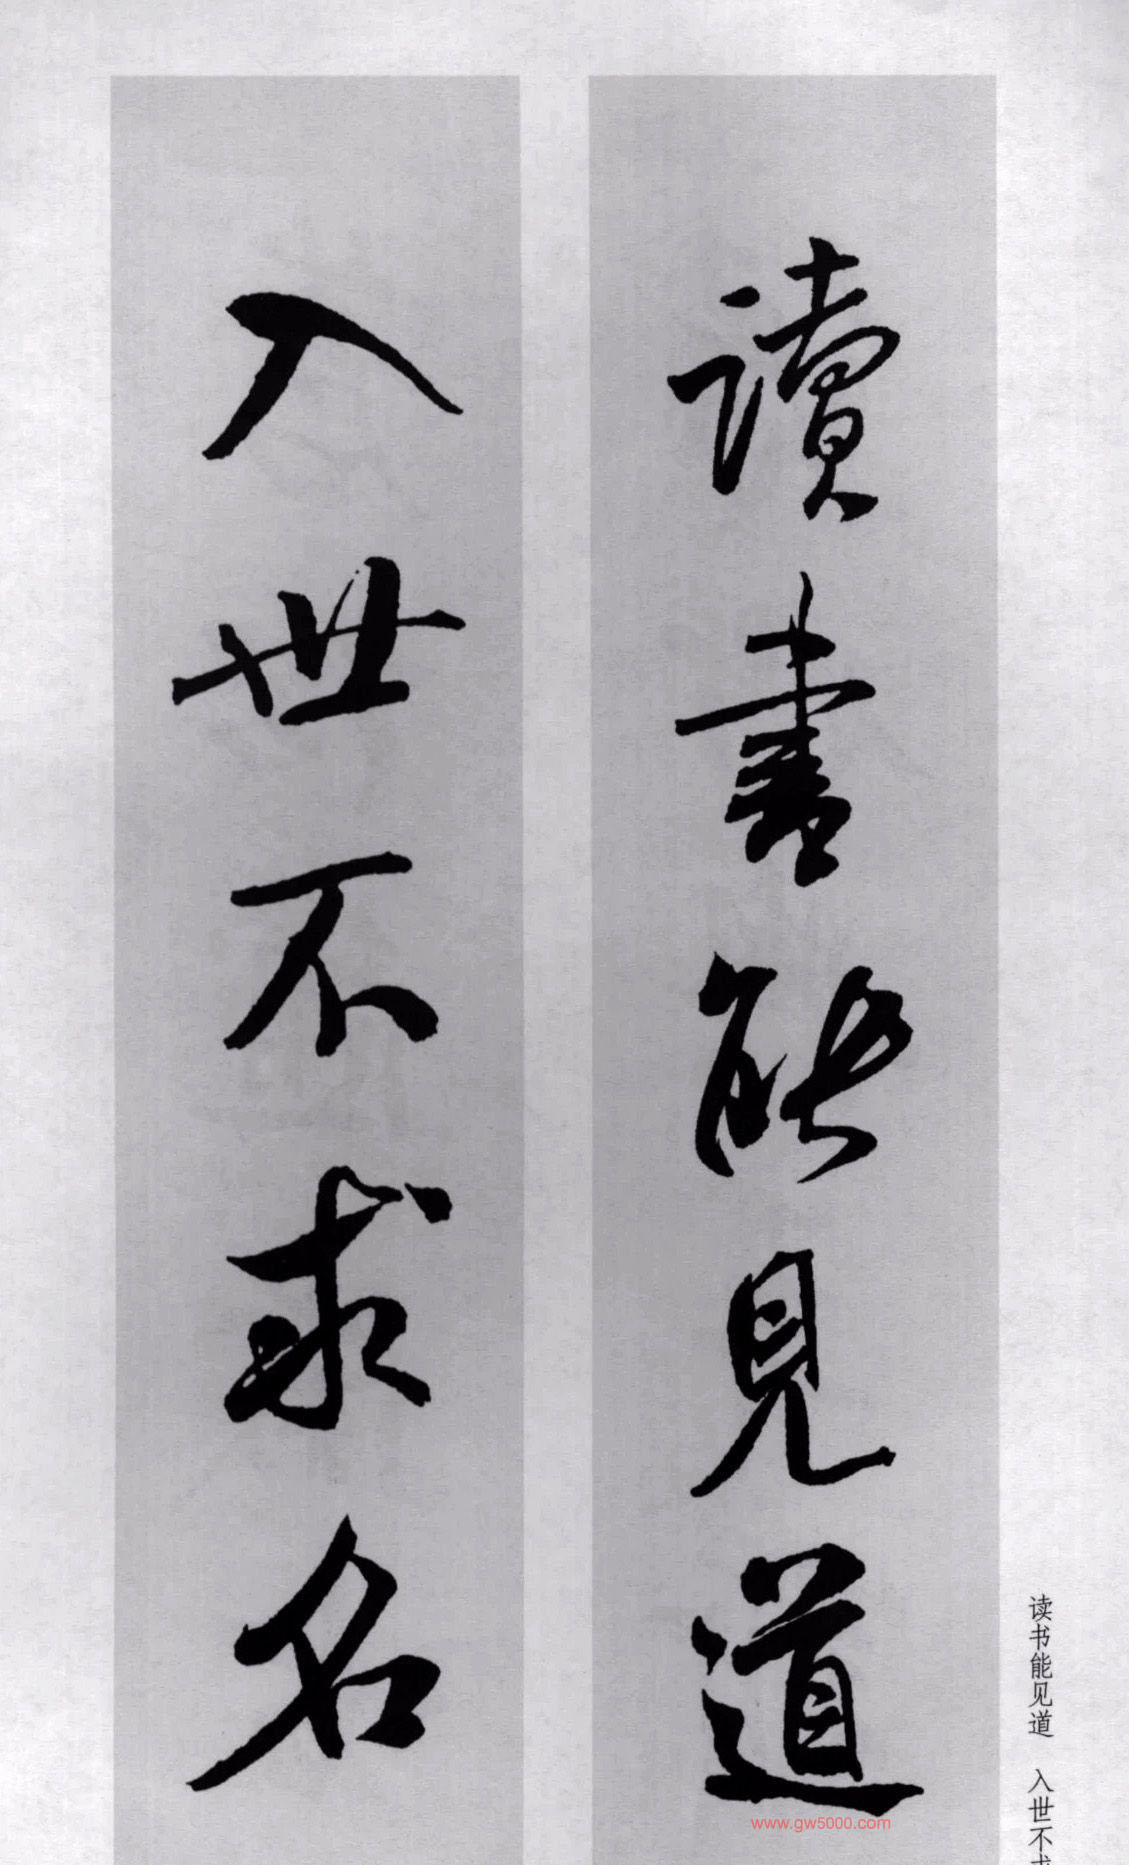 讀書能見道
入世不求名
读书能见道 入世不求
www.gw5000.com